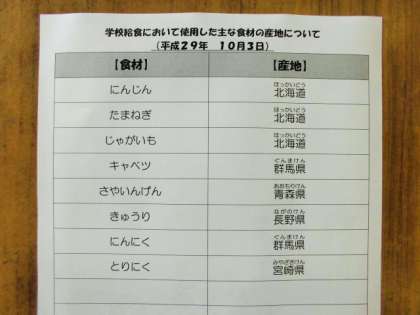 学校給食において使用した主な食材の産地について
（平成２９年　１０月３日）
【食材】 【産地】
にんじん 北海道 ほっかいどう
たまねぎ 北海道 ほっかいどう
じゃがいも 北海道 ほっかいどう
キャベツ 群馬県 ぐんまけん
さやいんげん 青森県 あおもりけん
きゅうり 長野県 ながのけん
にんにく 群馬県 ぐんまけん
とりにく 宮崎県 みやざきけん